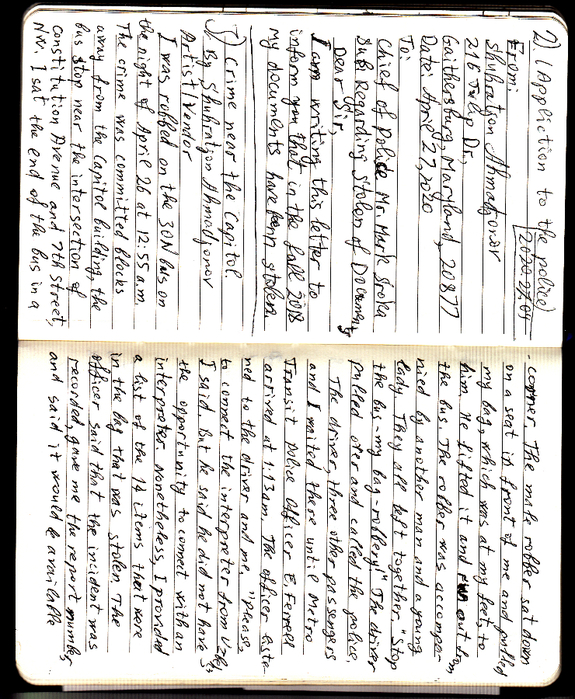 2). (Application to the police)
2020.27.04
From:
Shuhratjon Ahmadjonov
216 Tulip Dr,
Gaithersburg, Maryland, 20877
Date: April 27, 2020
To:
Chief of Police Mr. Mark Sroka
Sub Regarding Stolen of Documents
Dear Sir,
I am writing this letter to
inform you that in the fall 2018
my documents have been stolen.
3) Crime near the Capitol
By Shuhratjon Ahmadjonov
Artist/Vendor
I was robbed on the 30N bus on
the night of April 26 at 12:55 a.m.
The crime was committed blocks
away from the Capitol building, the
bus stop near the intersection of
Constitution Avenue and 7th Street,
NW. I sat the end of the bus in a
corner. The male robber sat down
on a seat in front of me and pulled
my bag, which was at my feet to
him. He lifted it and run out from
the bus. The robber was accompa-
nied by another man and a young
lady. They all left together. "Stop
the bus-my bag-robbery!" The driver
pulled over and called the police.
The driver, three other passengers
and I waited there until Metro
Transit Police Officer E. Ferrell
arrived at 1:13 am. The officer liste-
ned to the driver and me. "Please
to connect the interpreter from Uzbek,
I said. But he said he did not have
the opportunity to connect with an
interpreter. Nonetheless, I provided
a list of the 14 items that were
in the bag that was stolen. The
officer said that the incident was
recorded, gave me the report number
and said it would be available